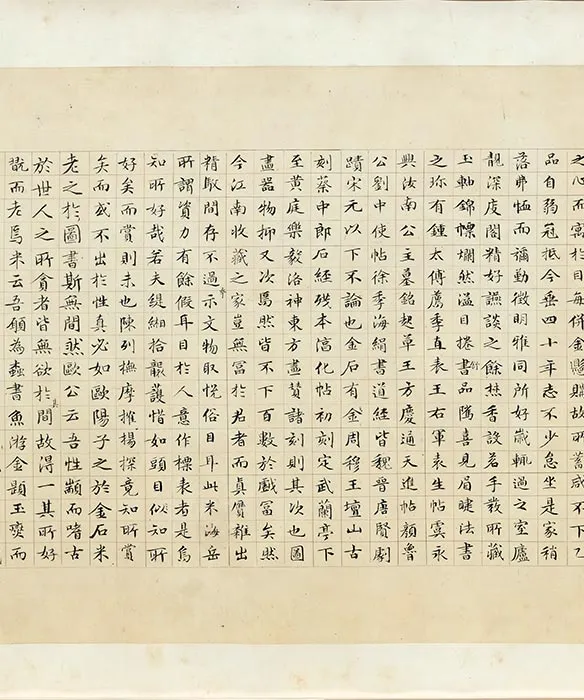 之心而寓於目每併金懸購故所蓄咸不下乙
品自弱冠抵今垂四十年志不少怠坐是家稍
落弗恤而彌勤徵明雅同所好歲輒過之室廬
靚深庋閣精好讌談之餘焚香設茗手發所藏
玉軸錦幖爛然溢目捲書舒品隲喜見眉睫法書
之珍有鍾太傅薦季直表王右軍袁生帖虞永
興汝南公主墓銘起草王方慶通天進帖顏魯
公劉中使帖徐季海絹書道經皆魏晉唐賢劇
蹟宋元以下不論也金石有金周穆王壇山古
刻蔡中郎石經殘本淳化帖初刻定武蘭亭下
至黃庭樂毅洛神東方畫贊諸刻則其次也圖
畫器物抑又次焉然皆不下百數於戲富矣然
今江南收藏之家豈無富於君者而真贋雜出
精駁間存不過示文物取悅俗目耳此米海岳
所謂資力有餘假耳目於人意作標表者是烏
知所好哉若夫緹緗拾襲護惜如頭目似知所
好矣而賞則未也陳列撫摩揚探竟知所賞
矣而或不出於性真必如歐陽子之於金石米
老之於圖書斯無間然歐公云吾性顓而嗜古
於世人之所貪者皆無欲於其間故得一其所好
翫而老焉米云吾願為蠹書魚游金題玉躞而